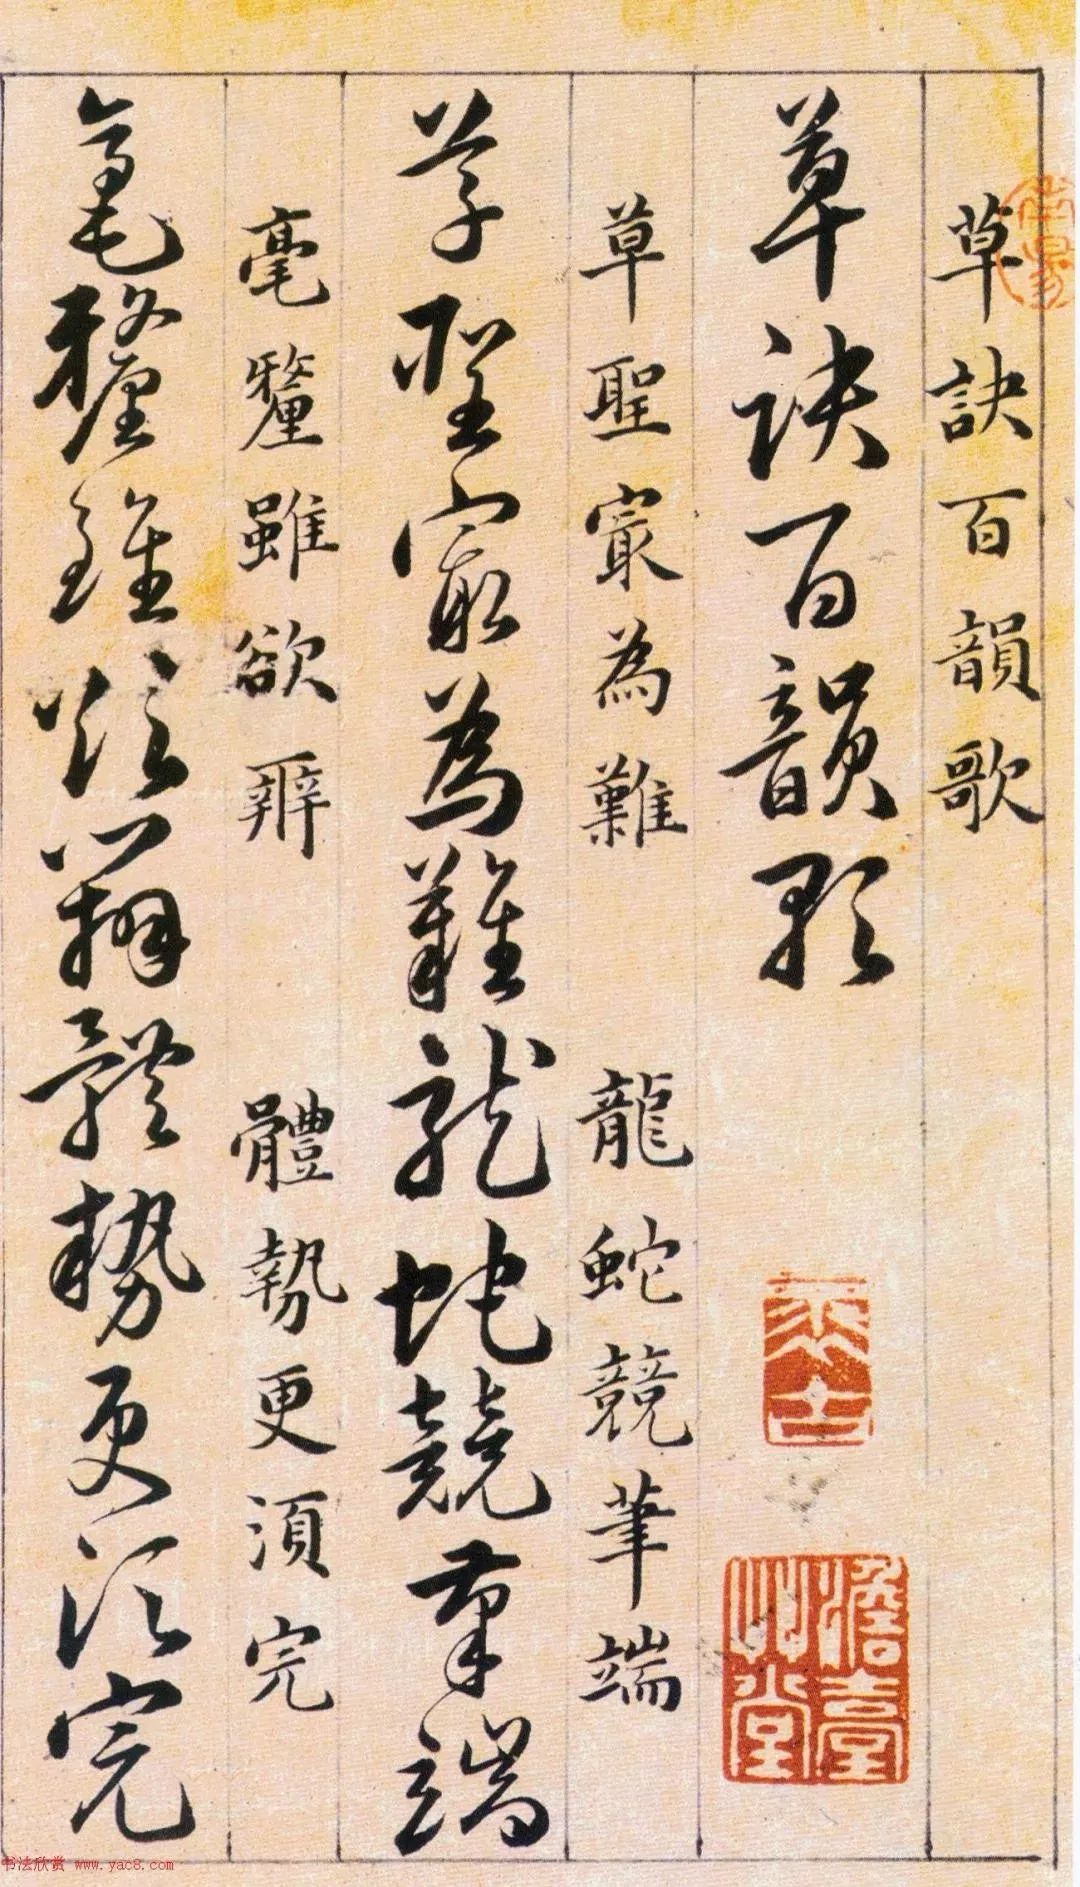 草訣百韻歌
草訣百韻歌
草聖㝡為難 龍蛇競筆端
草聖㝡為難龍蛇競筆端
毫釐雖欲辨 體勢更須完
毫釐雖欲辨體勢更須完
书法欣赏 www.yac8.com